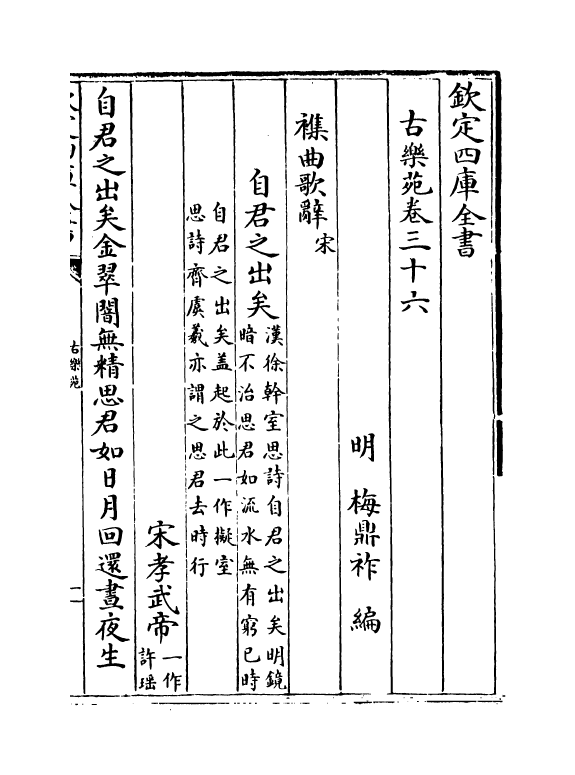 欽定四庫全書
古樂苑卷三十六
明 梅鼎祚 編
襍曲歌辭 宋
自君之出矣 漢徐幹室思詩自君之出矣明鏡
暗不治思君如流水無有窮已時
自君之出矣蓋起於此一作擬室
思詩齊虞羲亦謂之思君去時行
宋孝武帝 一作
許瑶
自君之出矣金翠闇無精思君如日月回還晝夜生
古樂苑